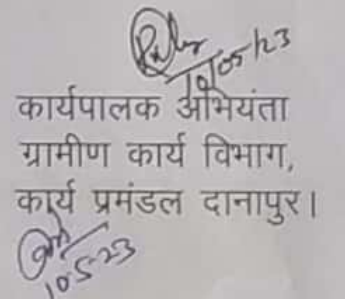 10/05/23
कार्यपालक अभियंता
ग्रामीण कार्य विभाग,
कार्य प्रमंडल दानापुर।
10-5-23